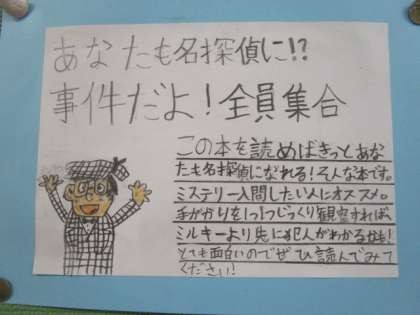 あなたも名探偵に!?
事件だよ!全員集合
この本を読めばきっとあな
たも名探偵になれる!そんな本です。
ミステリー入門したい人にオススメ。
手がかりを1つ1つじっくり観察すれば、
ミルキーより先に犯人がわかるかも!
とても面白いのでぜひ読んでみて
ください!